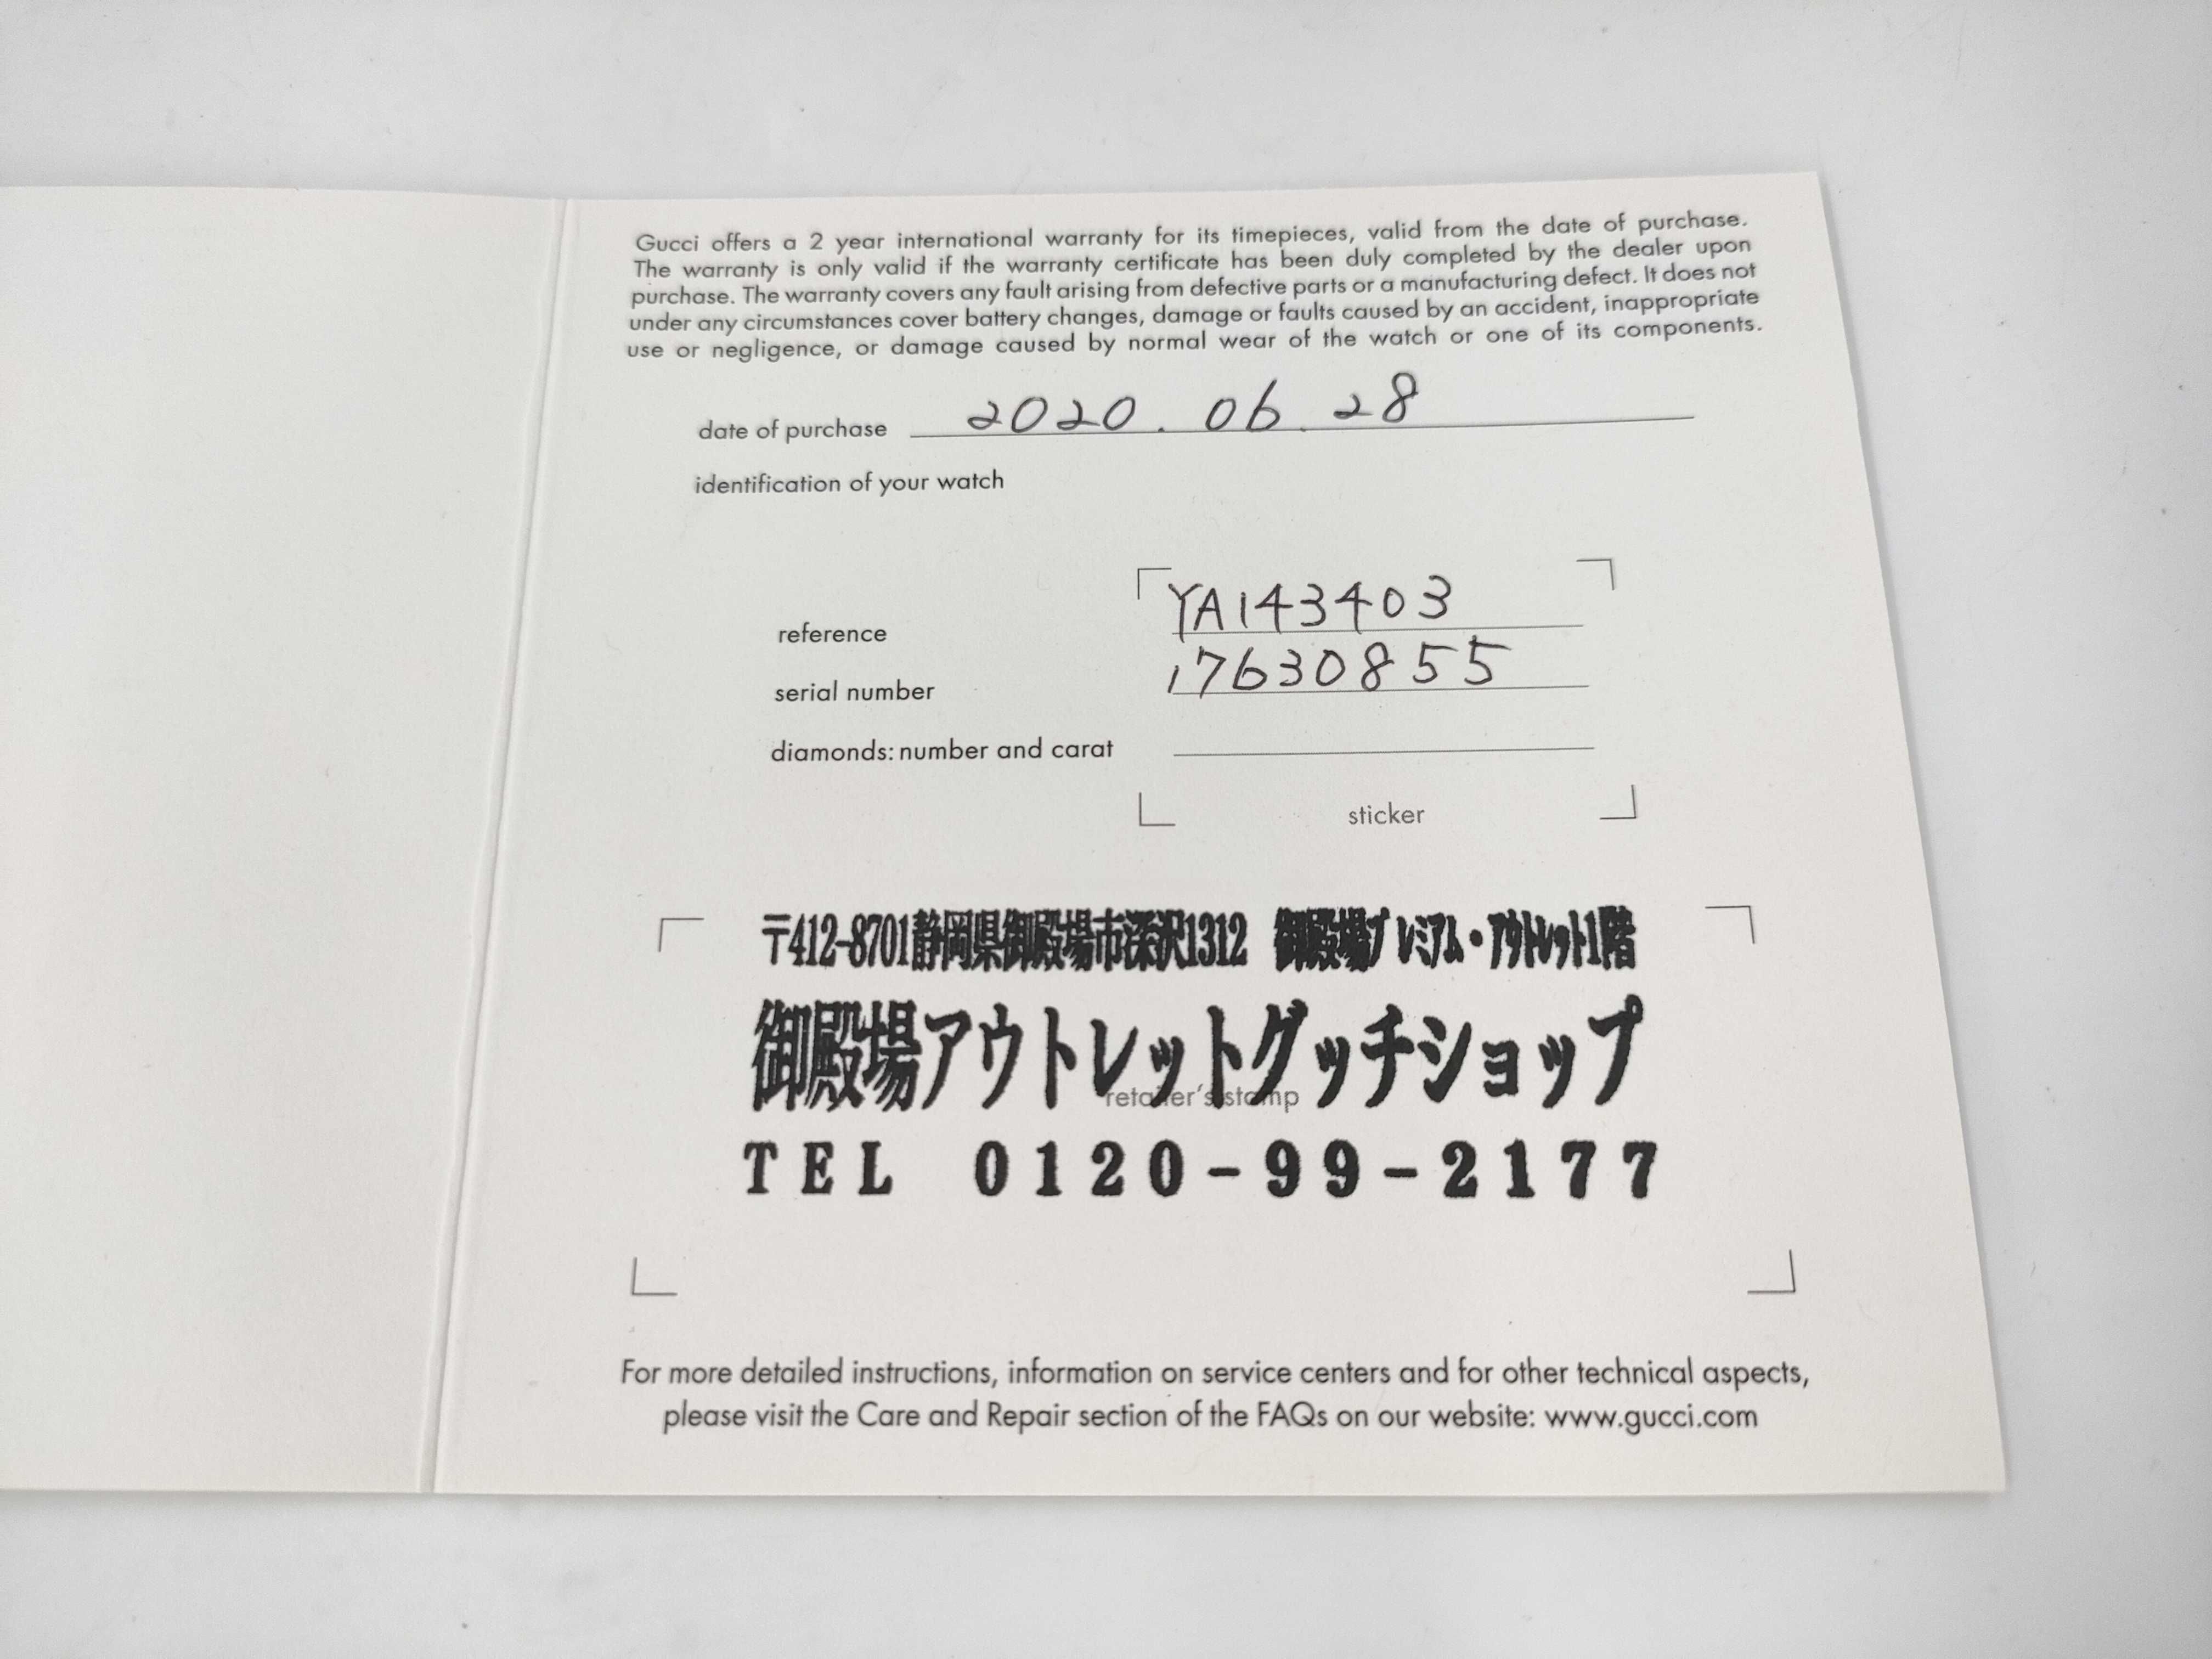 Gucci offers a 2 year international warranty for its timepieces, valid from the date of purchase.
The warranty is only valid if the warranty certificate has been duly completed by the dealer upon
purchase. The warranty covers any fault arising from defective parts or a manufacturing defect. It does not
under any circumstances cover battery changes, damage or faults caused by an accident, inappropriate
use or negligence, or damage caused by normal wear of the watch or one of its components.
date of purchase 2020.06.28
identification of your watch
reference YA143403
serial number 17630855
diamonds: number and carat
sticker
〒412-8701静岡県御殿場市深沢1312 御殿場プレミアム・アウトレット1階
御殿場アウトレットグッチショップ
retailer's stamp
TEL 0120-99-2177
For more detailed instructions, information on service centers and for other technical aspects,
please visit the Care and Repair section of the FAQs on our website: www.gucci.com